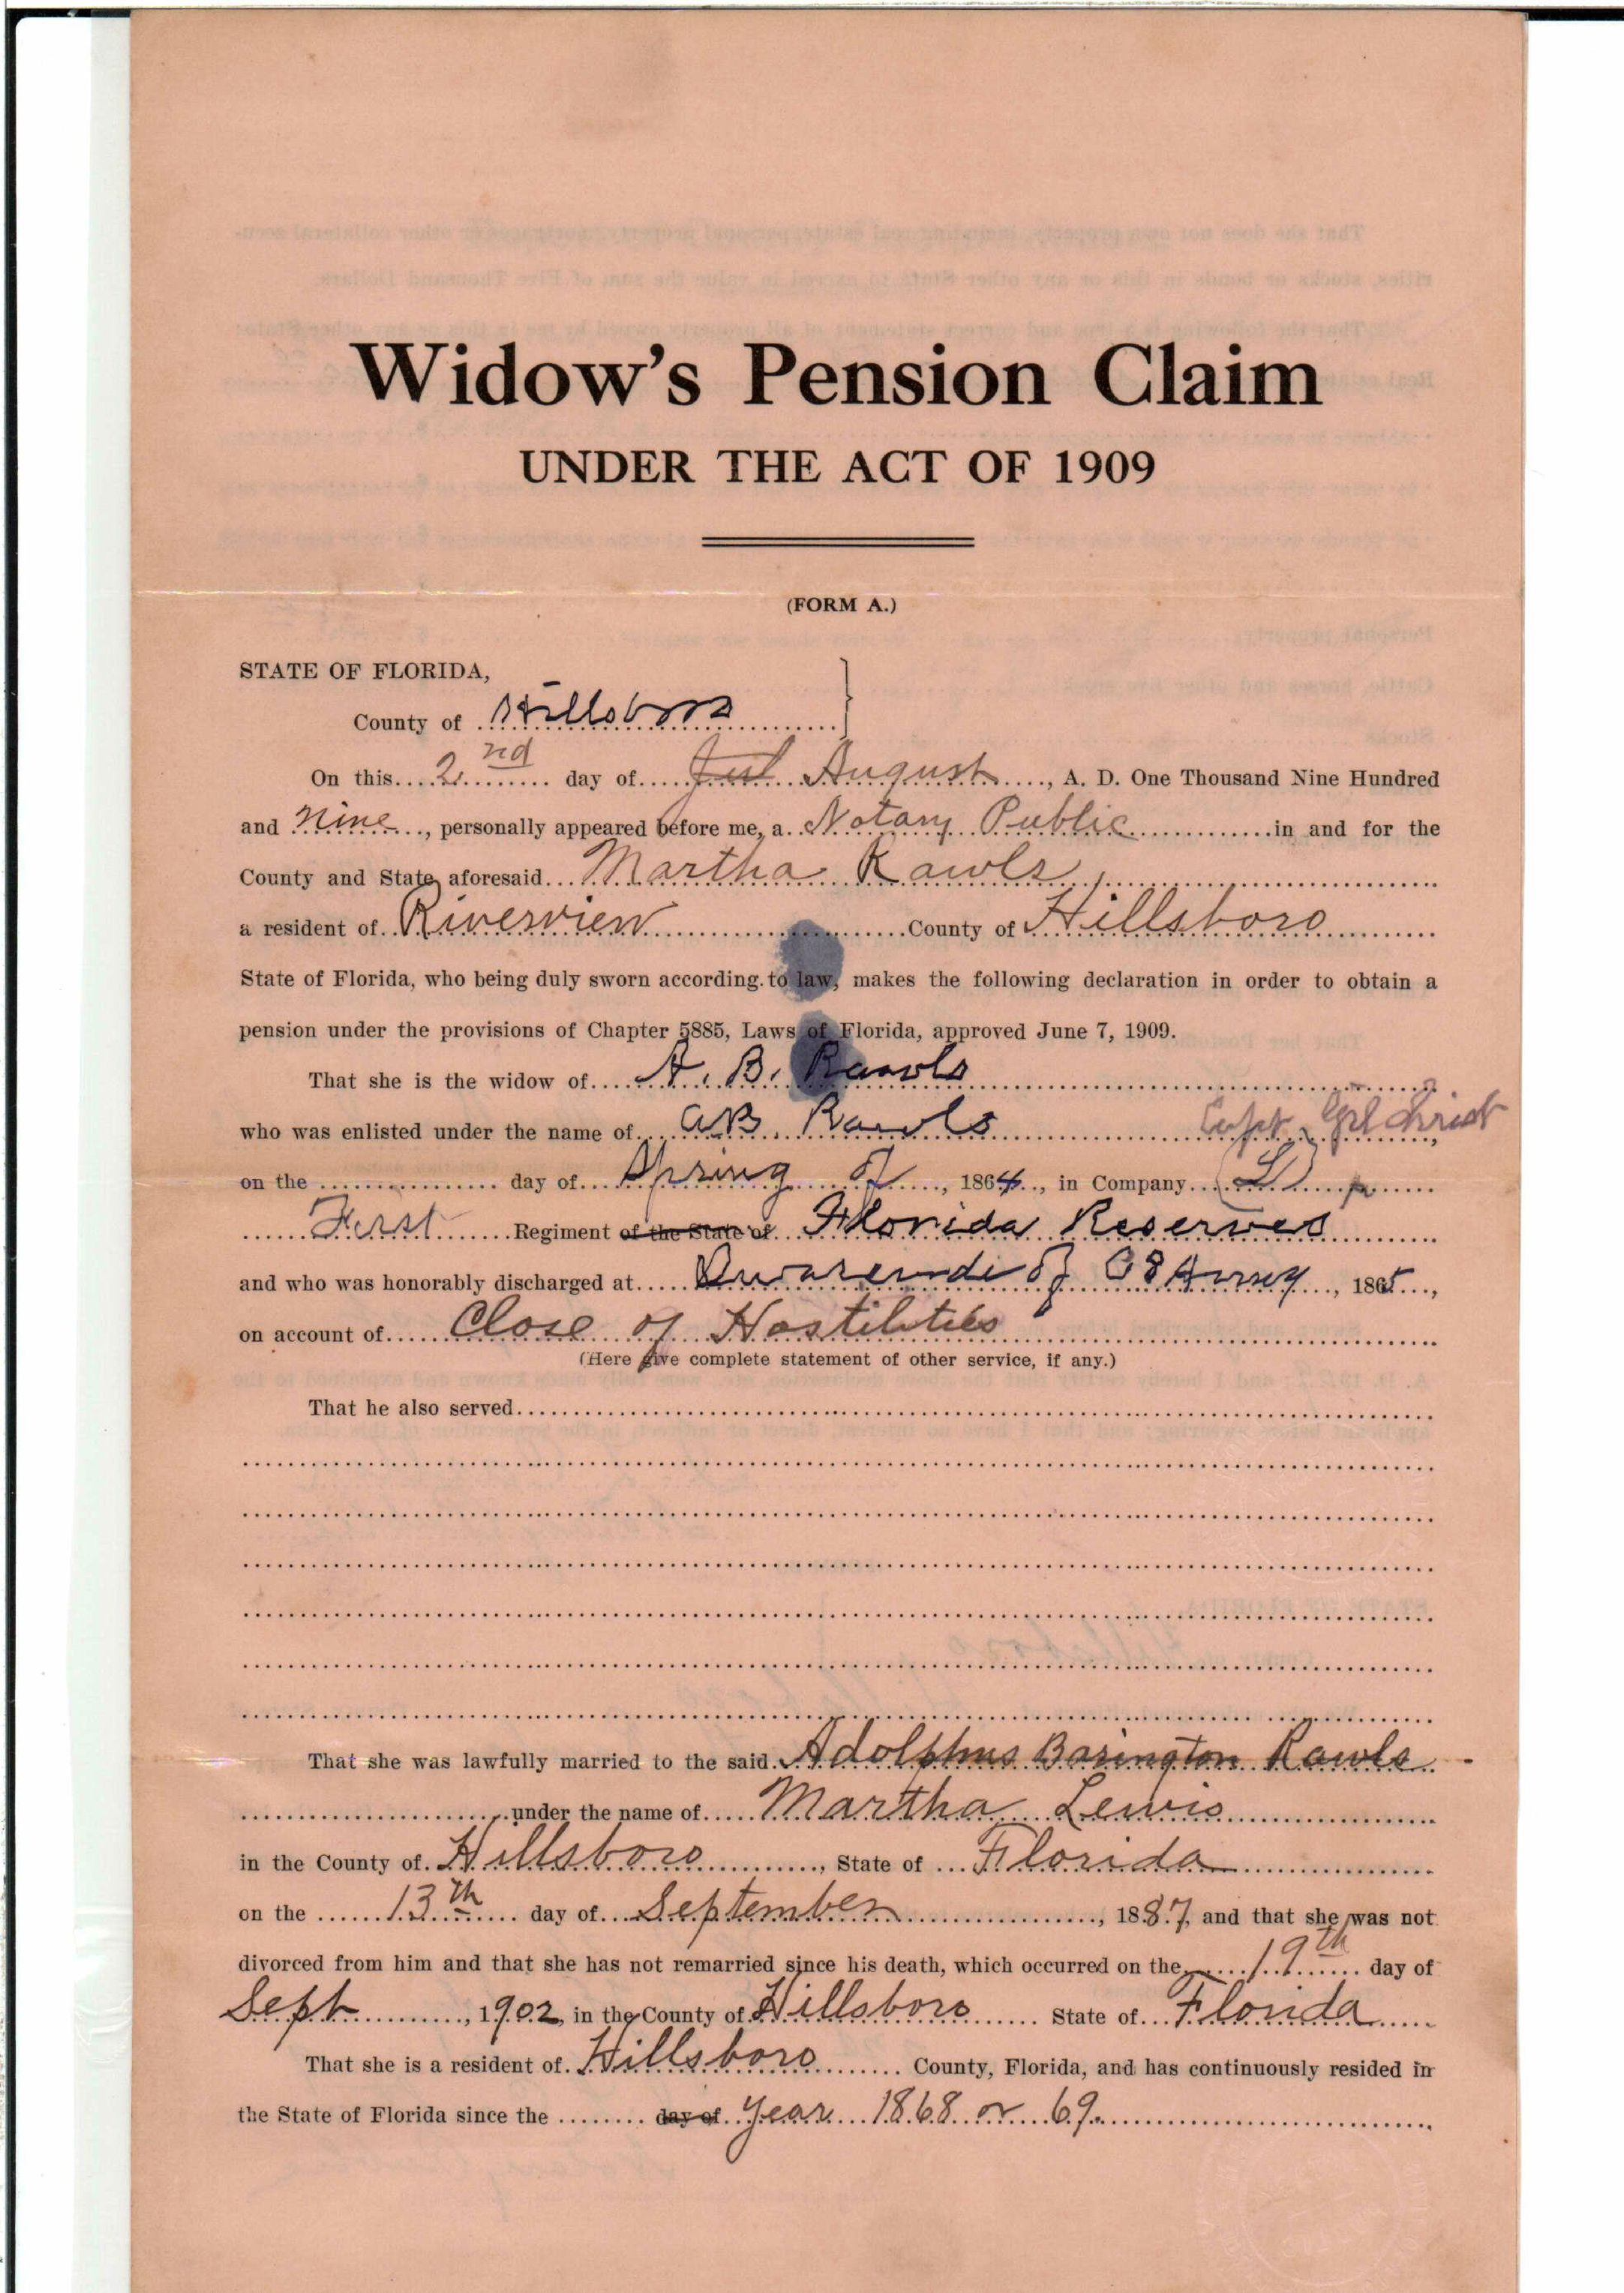 Widow's Pension Claim
UNDER THE ACT OF 1909
(FORM A.)
STATE OF FLORIDA,
County of Hillsboro
On this 2nd day of August, A. D. One Thousand Nine Hundred
and nine, personally appeared before me, a Notary Public in and for the
County and State aforesaid Martha Rawls,
a resident of Riverview County of Hillsboro
State of Florida, who being duly sworn according to law, makes the following declaration in order to obtain a
pension under the provisions of Chapter 5885, Laws of Florida, approved June 7, 1909.
That she is the widow of A. B. Rawls
who was enlisted under the name of AB Rawls Capt Gilchrist
on the day of Spring of, 1864, in Company
First Regiment of the State of Florida Reserves
and who was honorably discharged at of CS Army, 1865,
on account of Close of Hostilities
(Here give complete statement of other service, if any.)
That he also served
That she was lawfully married to the said Adolphus Barington Rawls
under the name of Martha Lewis
in the County of Hillsboro, State of Florida
on the 13th day of September, 1887, and that she was not
divorced from him and that she has not remarried since his death, which occurred on the 19th day of
Sept, 1902, in the County of Hillsboro State of Florida
That she is a resident of Hillsboro County, Florida, and has continuously resided in
the State of Florida since the day of year 1868 or 69